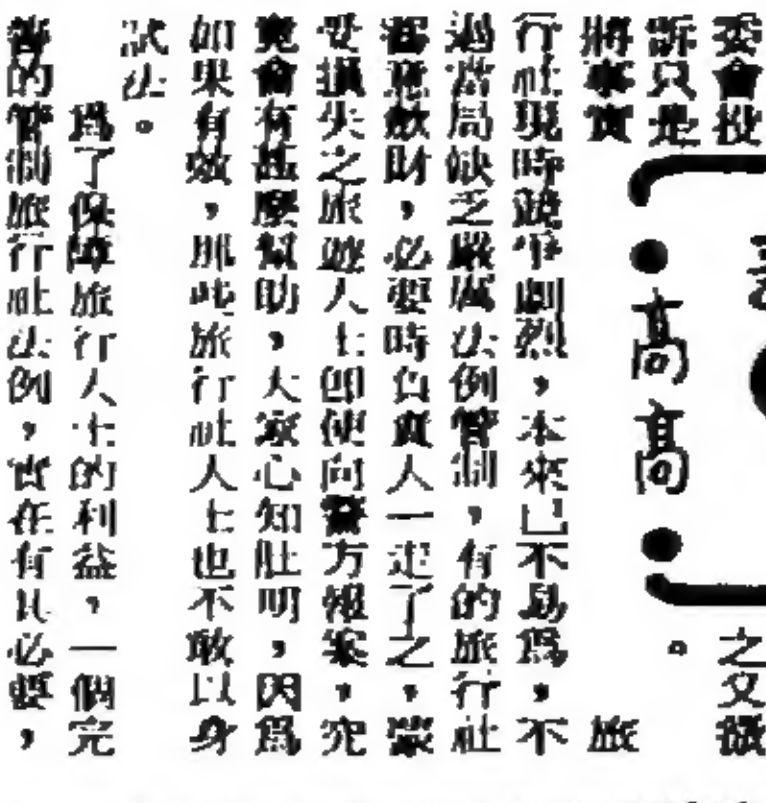 委會投
訴只是
將事實
高高
之又
。
旅
行社現時競爭劇烈，本來已不易爲，不
過當局缺乏嚴厲法例管制，有的旅行社
蓄意斂財，必要時負責人一走了之，蒙
受損失之旅遊人士卽使向警方報案，究
竟會有甚麼幫助，大家心知肚明，因爲
如果有效，那些旅行社人士也不敢以身
試法。
爲了保障旅行人士的利益，一個完
善的管制旅行社法例，實在有其必要，